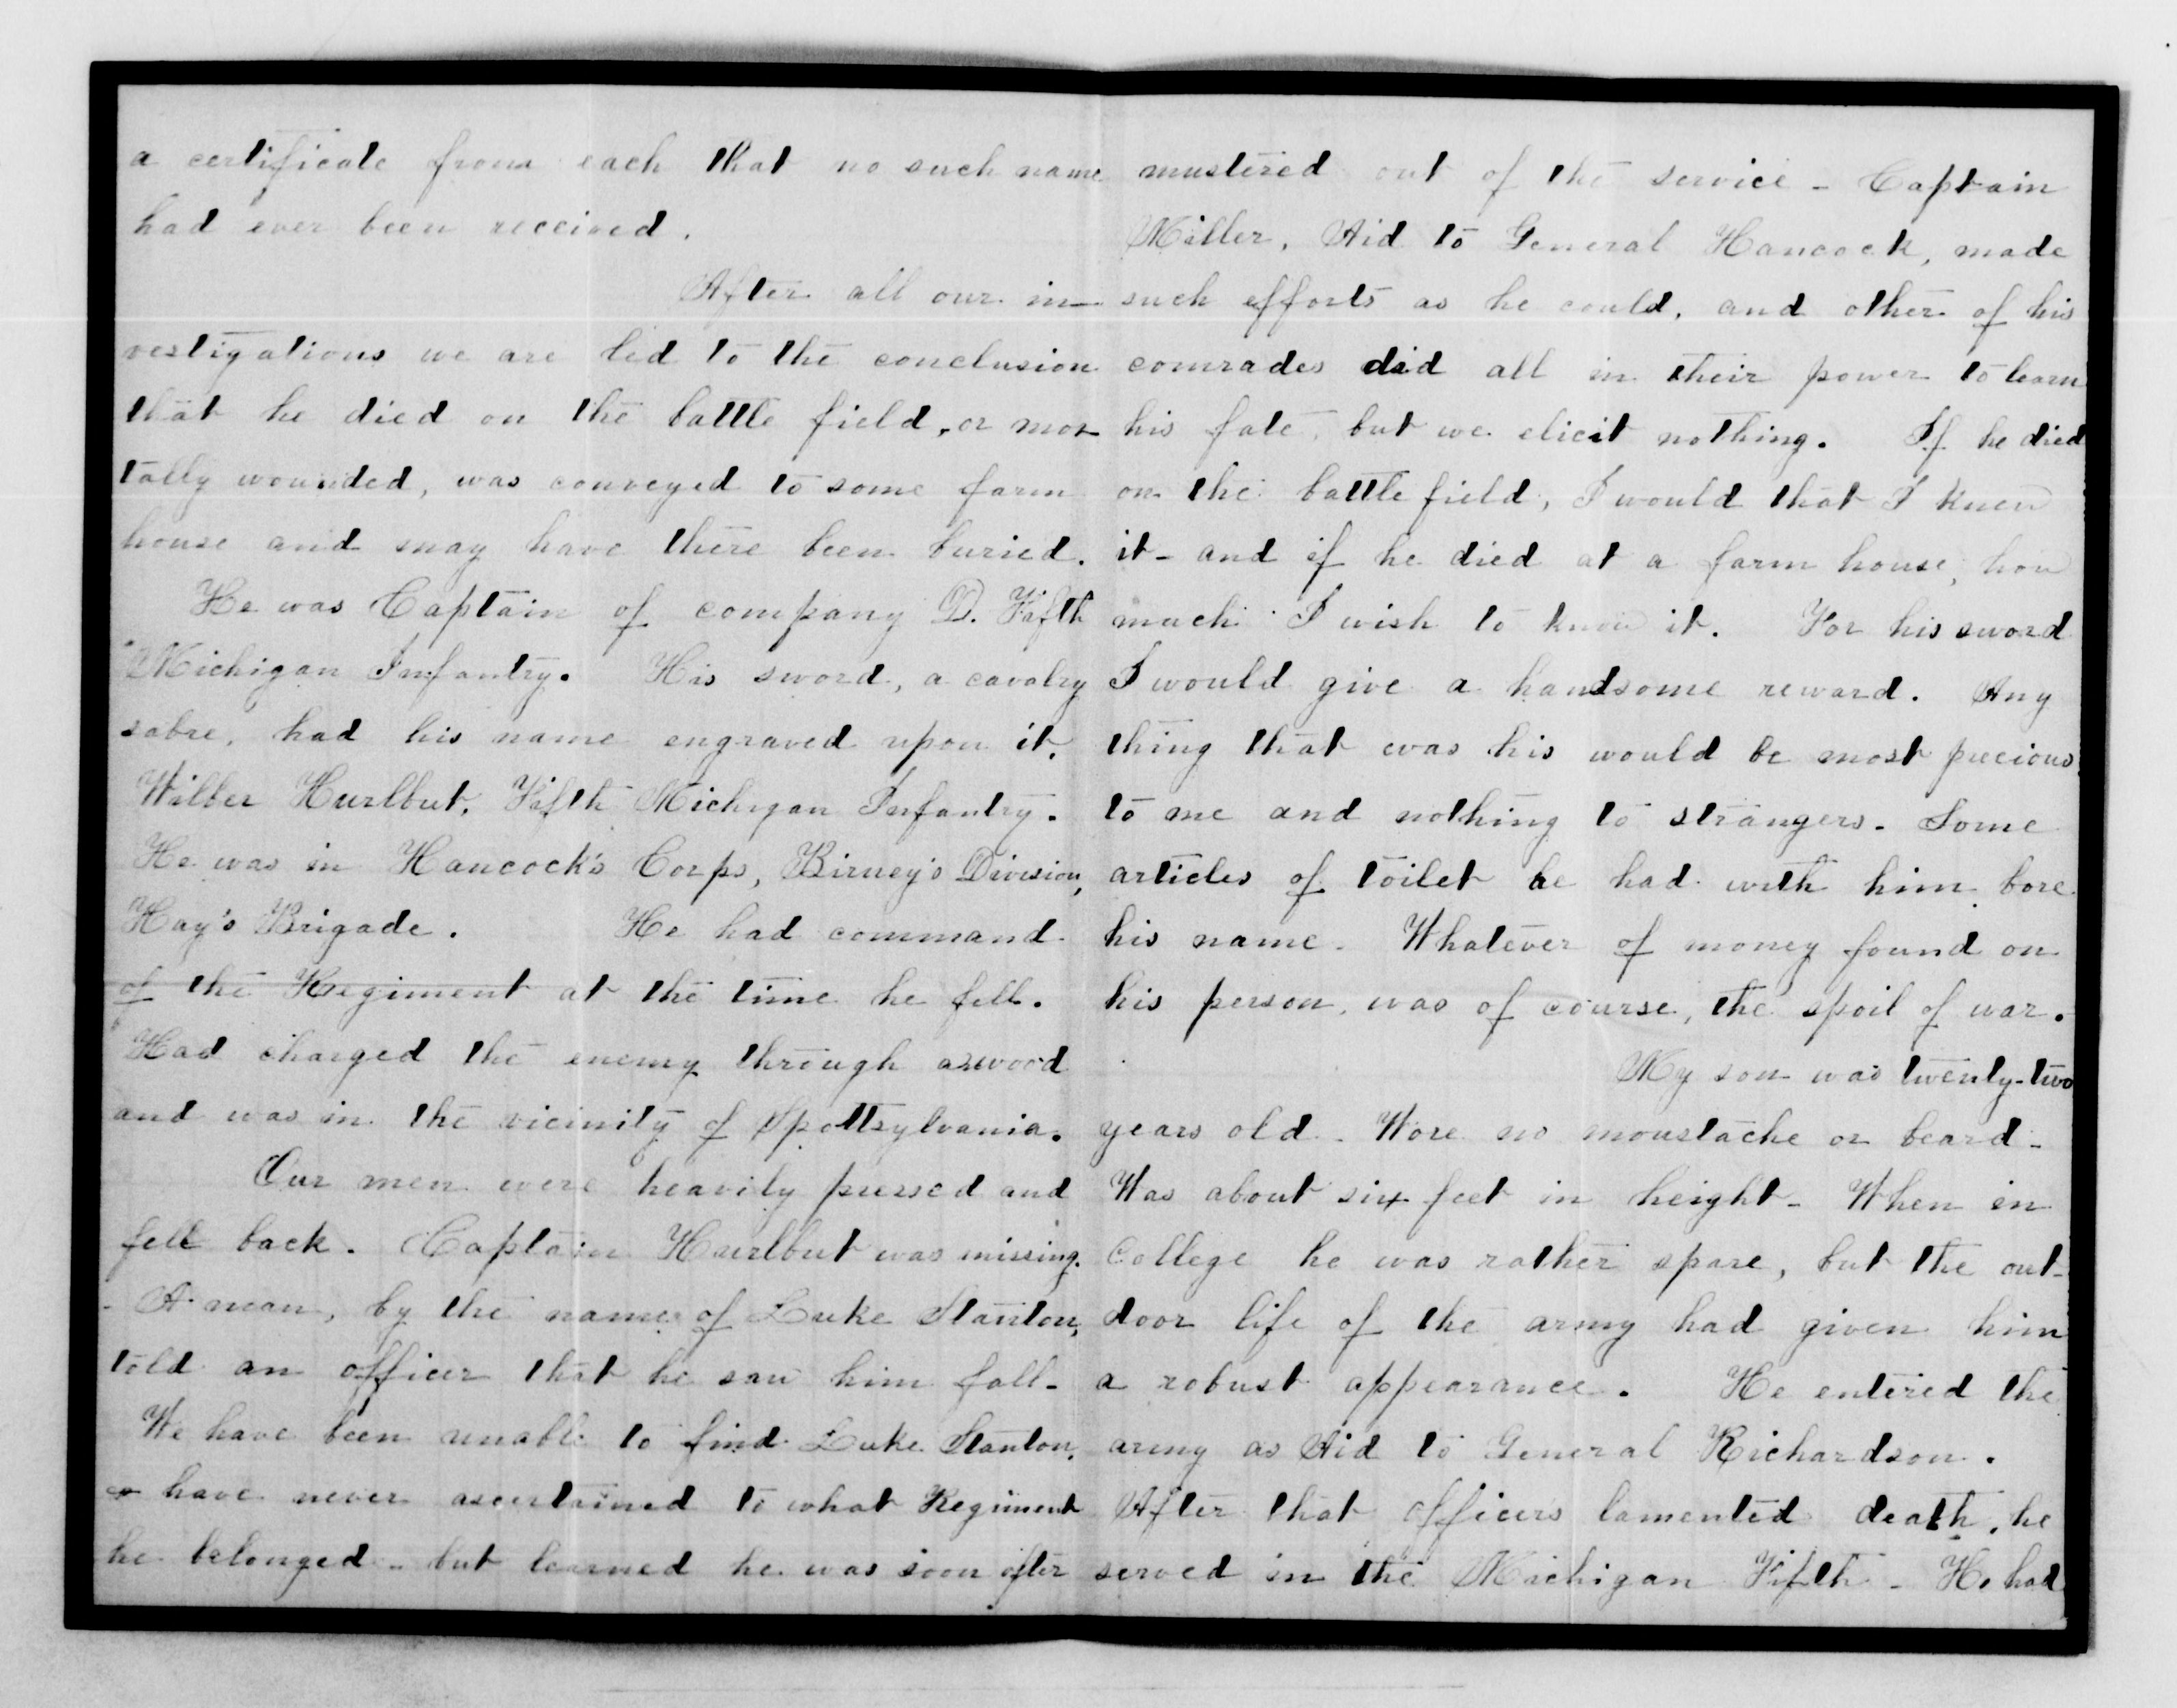 a certificate from each that no such name
had ever been received.
After all our in-
vestigations we are led to the conclusion
that he died on the battle field, or mor
tally wounded, was conveyed to some farm
house and may have there been buried.
He was Captain of company D. Fifth
Michigan Infantry. His sword, a cavalry
sabre, had his name engraved upon it.
Wilber Hurlbut, Fifth Michigan Infantry.
He was in Hancock's Corps, Birney's Division,
Hay's Brigade. He had command
of the Regiment at the time he fell.
Had charged the enemy through a wood
and was in the vicinity of Spottsylvania.
Our men were heavily pressed and
fell back. Captain Hurlbut was missing.
- A man, by the name of Luke Stanton,
told an officer that he saw him fall-
We have been unable to find Luke Stanton,
or have never ascertained to what Regiment
he belonged - but learned he was soon after
mustered out of the service - Captain
Miller, Aid to General Hancock, made
such efforts as he could, and other of his
comrades did all in their power to learn
his fate, but we elicit nothing. If he died
on the battle field, I would that I knew
it - and if he died at a farm house, how
much I wish to know it. For his sword
I would give a handsome reward. Any
thing that was his would be most precious
to me and nothing to strangers. Some
articles of toilet he had with him bore
his name. Whatever of money found on
his person, was of course, the spoil of war.
My son was twenty-two
years old. Wore no moustache or beard -
Was about six feet in height - When in
College he was rather spare, but the out-
door life of the army had given him
a robust appearance. He entered the
army as Aid to General Richardson.
After that officers lamented death, he
served in the Michigan Fifth - He had